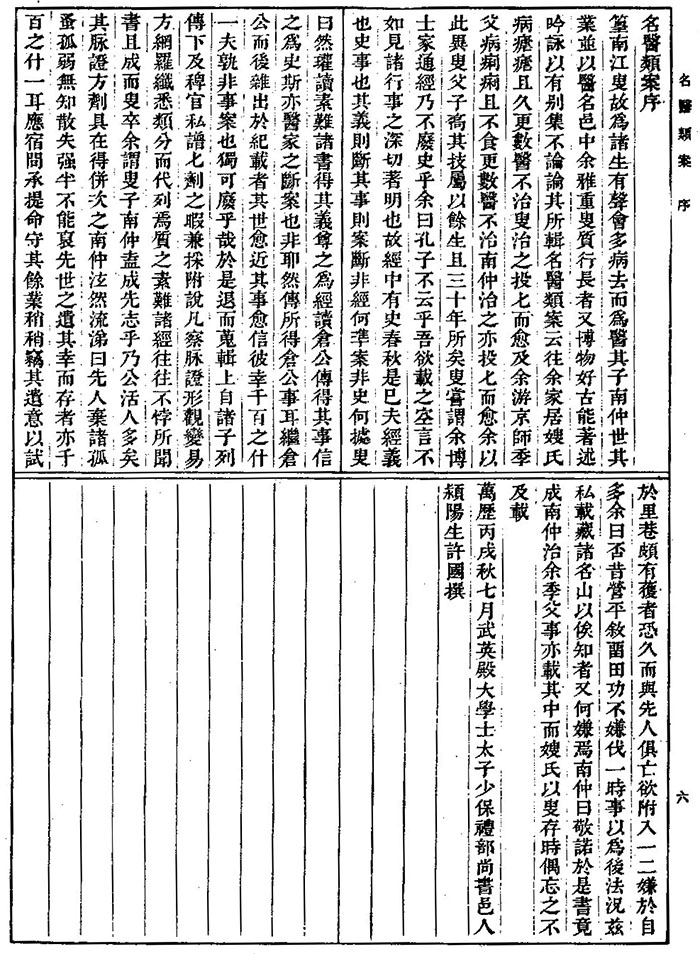 名醫類案 序
六
名醫類案序
篁南江叟故爲諸生有聲會多病去而爲醫其子南仲世其
業並以醫名邑中余雅重叟質行長者又博物好古能著述
吟詠以有別集不論論其所輯名醫類案云往余家居嫂氏
病瘧瘧且久更數醫不治叟治之投七而愈及余游京師季
父病痢痢且不食更數醫不治南仲治之亦投七而愈余以
此異叟父子高其技屬以餘生且三十年所矣叟嘗謂余博
士家通經乃不廢史乎余曰孔子不云乎吾欲載之空言不
如見諸行事之深切著明也故經中有史春秋是已夫經義
也史事也其義則斷其事則案斷非經何準案非史何據叟
曰然瓘讀素難諸書得其義尊之爲經讀倉公傳得其事信
之爲史斯亦醫家之斷案也非耶然傳所得倉公事耳繼倉
公而後雜出於紀載者其世愈近其事愈信彼幸千百之什
一夫孰非事案也獨可廢乎哉於是退而蒐輯上自諸子列
傳下及稗官私譜七劑之暇兼採附說凡察脉證形觀變易
方網羅纖悉類分而代列焉質之素難諸經往往不悖所聞
書且成而叟卒余謂叟子南仲盍成先志乎乃公活人多矣
其脉證方劑具在得併次之南仲泫然流涕曰先人棄諸孤
蚤孤弱無知散失强半不能裒先世之遺其幸而存者亦千
百之什一耳應宿間承提命守其餘業稍稍竊其遺意以試
於里巷頗有獲者恐久而與先人俱亡欲附入一二嫌於自
多余曰否昔營平敘畱田功不嫌伐一時事以爲後法況茲
私載藏諸名山以俟知者又何嫌焉南仲曰敬諾於是書竟
成南仲治余季父事亦載其中而嫂氏以叟存時偶忘之不
及載
萬歷丙戌秋七月武英殿大學士太子少保禮部尚書邑人
潁陽生許國撰